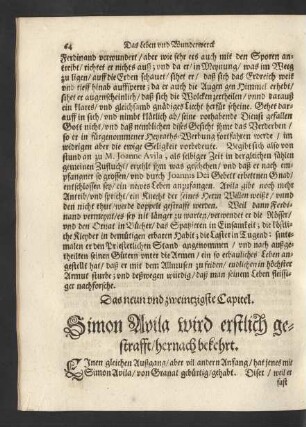 64 Das leben vnd Wunderwerck
Ferdinand verwundert / aber wie sehr ers auch mit den Sporen an-
treibt / richtet er nichts auß; vnd da er / in Meynung / was im Weeg
zu ligen / auff die Erden schauet / sihet er / daß sich das Erdreich weit
vnd tieff hinab auffsperre; da er auch die Augen gen Himmel erhebt /
sihet er augenscheinlich / daß sich die Wolcken zertheilen / vnnd darauß
ein klares / vnd gleichsamb gnädiges Liecht herfür scheine. Gehet dar-
auff in sich / vnd nimbt klärlich ab / seine vorhabende Dienst gefallen
Gott nicht / vnd daß nemblichen dises Gesicht jhme das Verderben /
so er in fürgenommener Heyraths-Werbung fortfahren werde / im
widrigen aber die ewige Seligkeit vorbedeute. Begibt sich also von
stund an zu M. Joanne Avila, als selbiger Zeit in dergleichen fählen
gemeinen Zuflucht / erzehlt jhm was geschehen / vnd bittet er nach em-
pfangener so grossen / vnd durch Joannis Dei Gebett erbettnen Gnad /
entschlossen sey / ein newes Leben anzufangen. Avila gibt noch nicht
Antrib / vnd spricht / ein Knecht der seines Herrn Willen weist / vnnd
den nicht thut / werde doppelt gestrafft werden. Weil dann Ferdi-
nand vermeynt / es sey nit länger zu warten / verwendet er die Rösser /
vnd den Ornat in Bücher / das Spatzieren in Einsamkeit / die köstli-
che Kleyder in demütigen erbaren Habit / die Laster in Tugend; sinte-
malen er den Priesterlichen Stand angenommen / vnd nach außge-
theilten seinen Gütern vnter die Armen / ein so erbauliches Leben an-
gestellt hat / daß er mit dem Allmusen zu friden / wolt er in höchster
Armut sturbe; vnd deßwegen würdig / daß man seinem Leben fleissi-
ger nachforsche.
Das neun vnd zweintzigste Capitel.
Simon Avila wird erstlich ge-
strafft / hernach bekehrt.
EInen gleichen Außgang / aber vil andern Anfang / hat jenes mit
Simon Avila / von Granat gebürtig / gehabt. Diser / weil er
fast